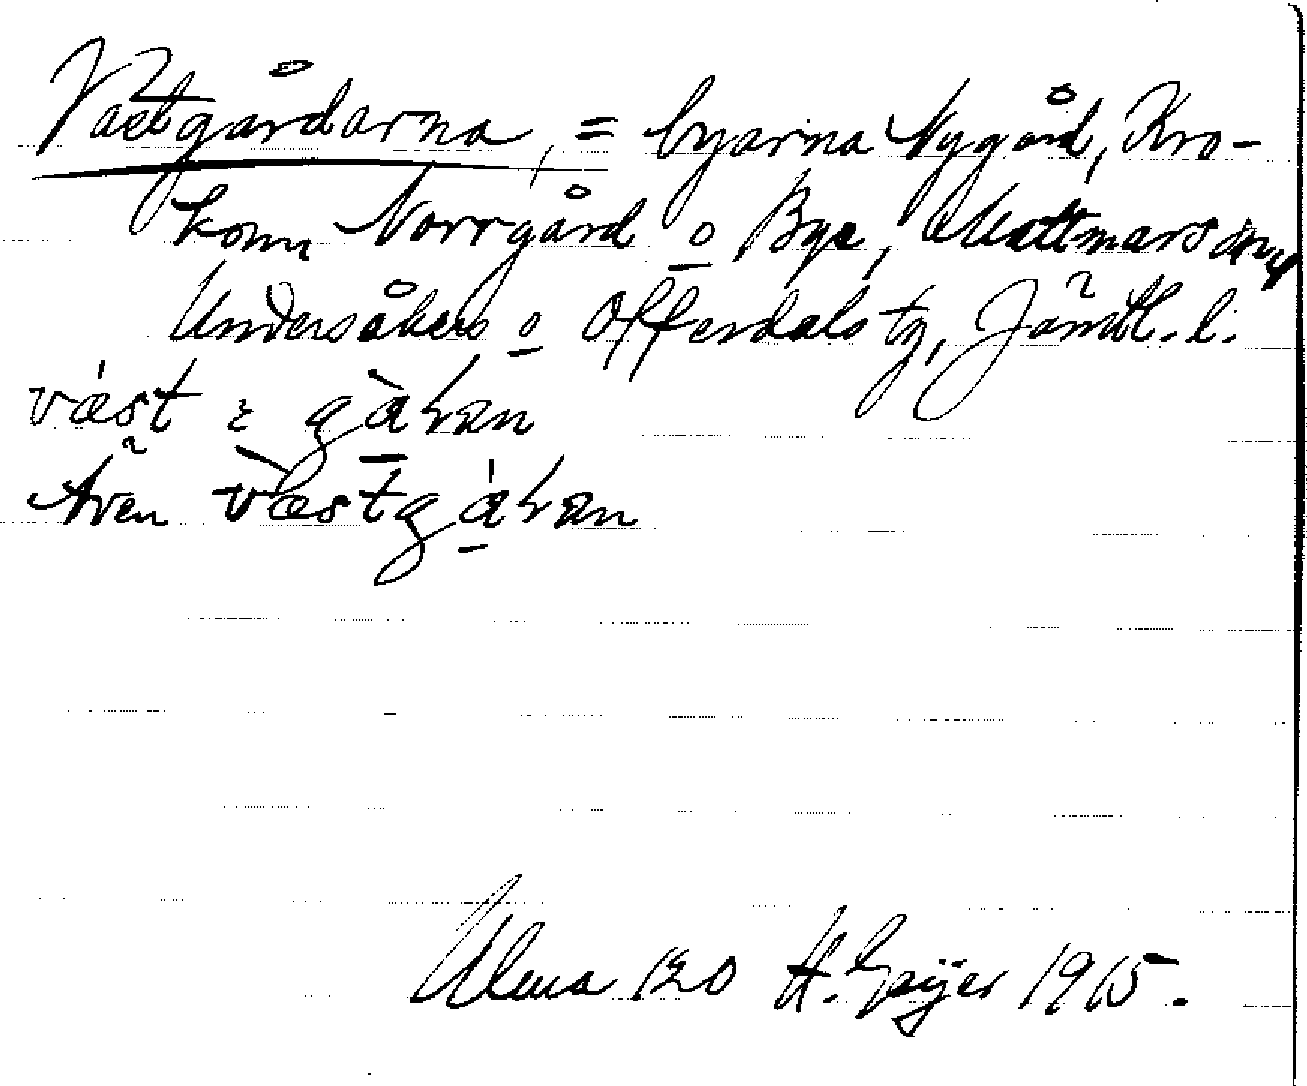 Västgårdarna, = byarna Nygård, Kro-
kom, Norrgård o Bye, Mattmars sn,
Undersåkers o Offerdals tg, Jämtl. l.
væst : gàṟan
Även væstgáṟan
Ulma 120 H. Geijer 1915.